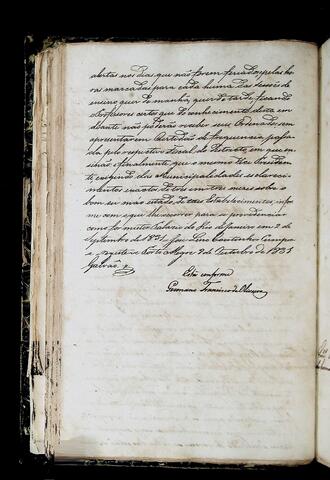 abertas nos dias que não forem feriados, pelas ho
ras marcadas para cada huma das sessões de
ensino quer de manhã, quer de tarde, ficando
os Professores certos que do conhecimento desta em
diante não poderão receber seus Ordenados, sem
apresentarem Certidão de frequencia passa
da pelo respectivo Fiscal do Districto, em que en
sinão; e finalmente que o mesmo Vice Presiden
te, exigindo das Municipalidades esclareci
mentos exactos de tres em tres mezes sobre o
bom ou mao estado de taes Estabelecimentos, infor
me com o que lhe occorrer para se providenciar
como for muito. Palacio do Rio de Janeiro em 2 de
Setembro de 1831. José Lino Coutinho. Cumpra-se
e registe-se. Porto Alegre 7 de Outubro de 1831
Galvão.
Está conforme
Germano Francisco de Oliveira